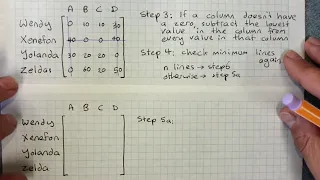 A B C D
Wendy 0 10 10 30
Xenefon 40 0 0 40
Yolanda 30 20 20 0
Zeldas 0 60 20 50
Step 3: If a column doesn't have
a zero, subtract the lowest
value in the column from
every value in that column
Step 4: check minimum lines
again
n lines → step6
otherwise → step 5a
A B C D
Wendy
Xenefon
Yolanda
Zelda
Step 5a: